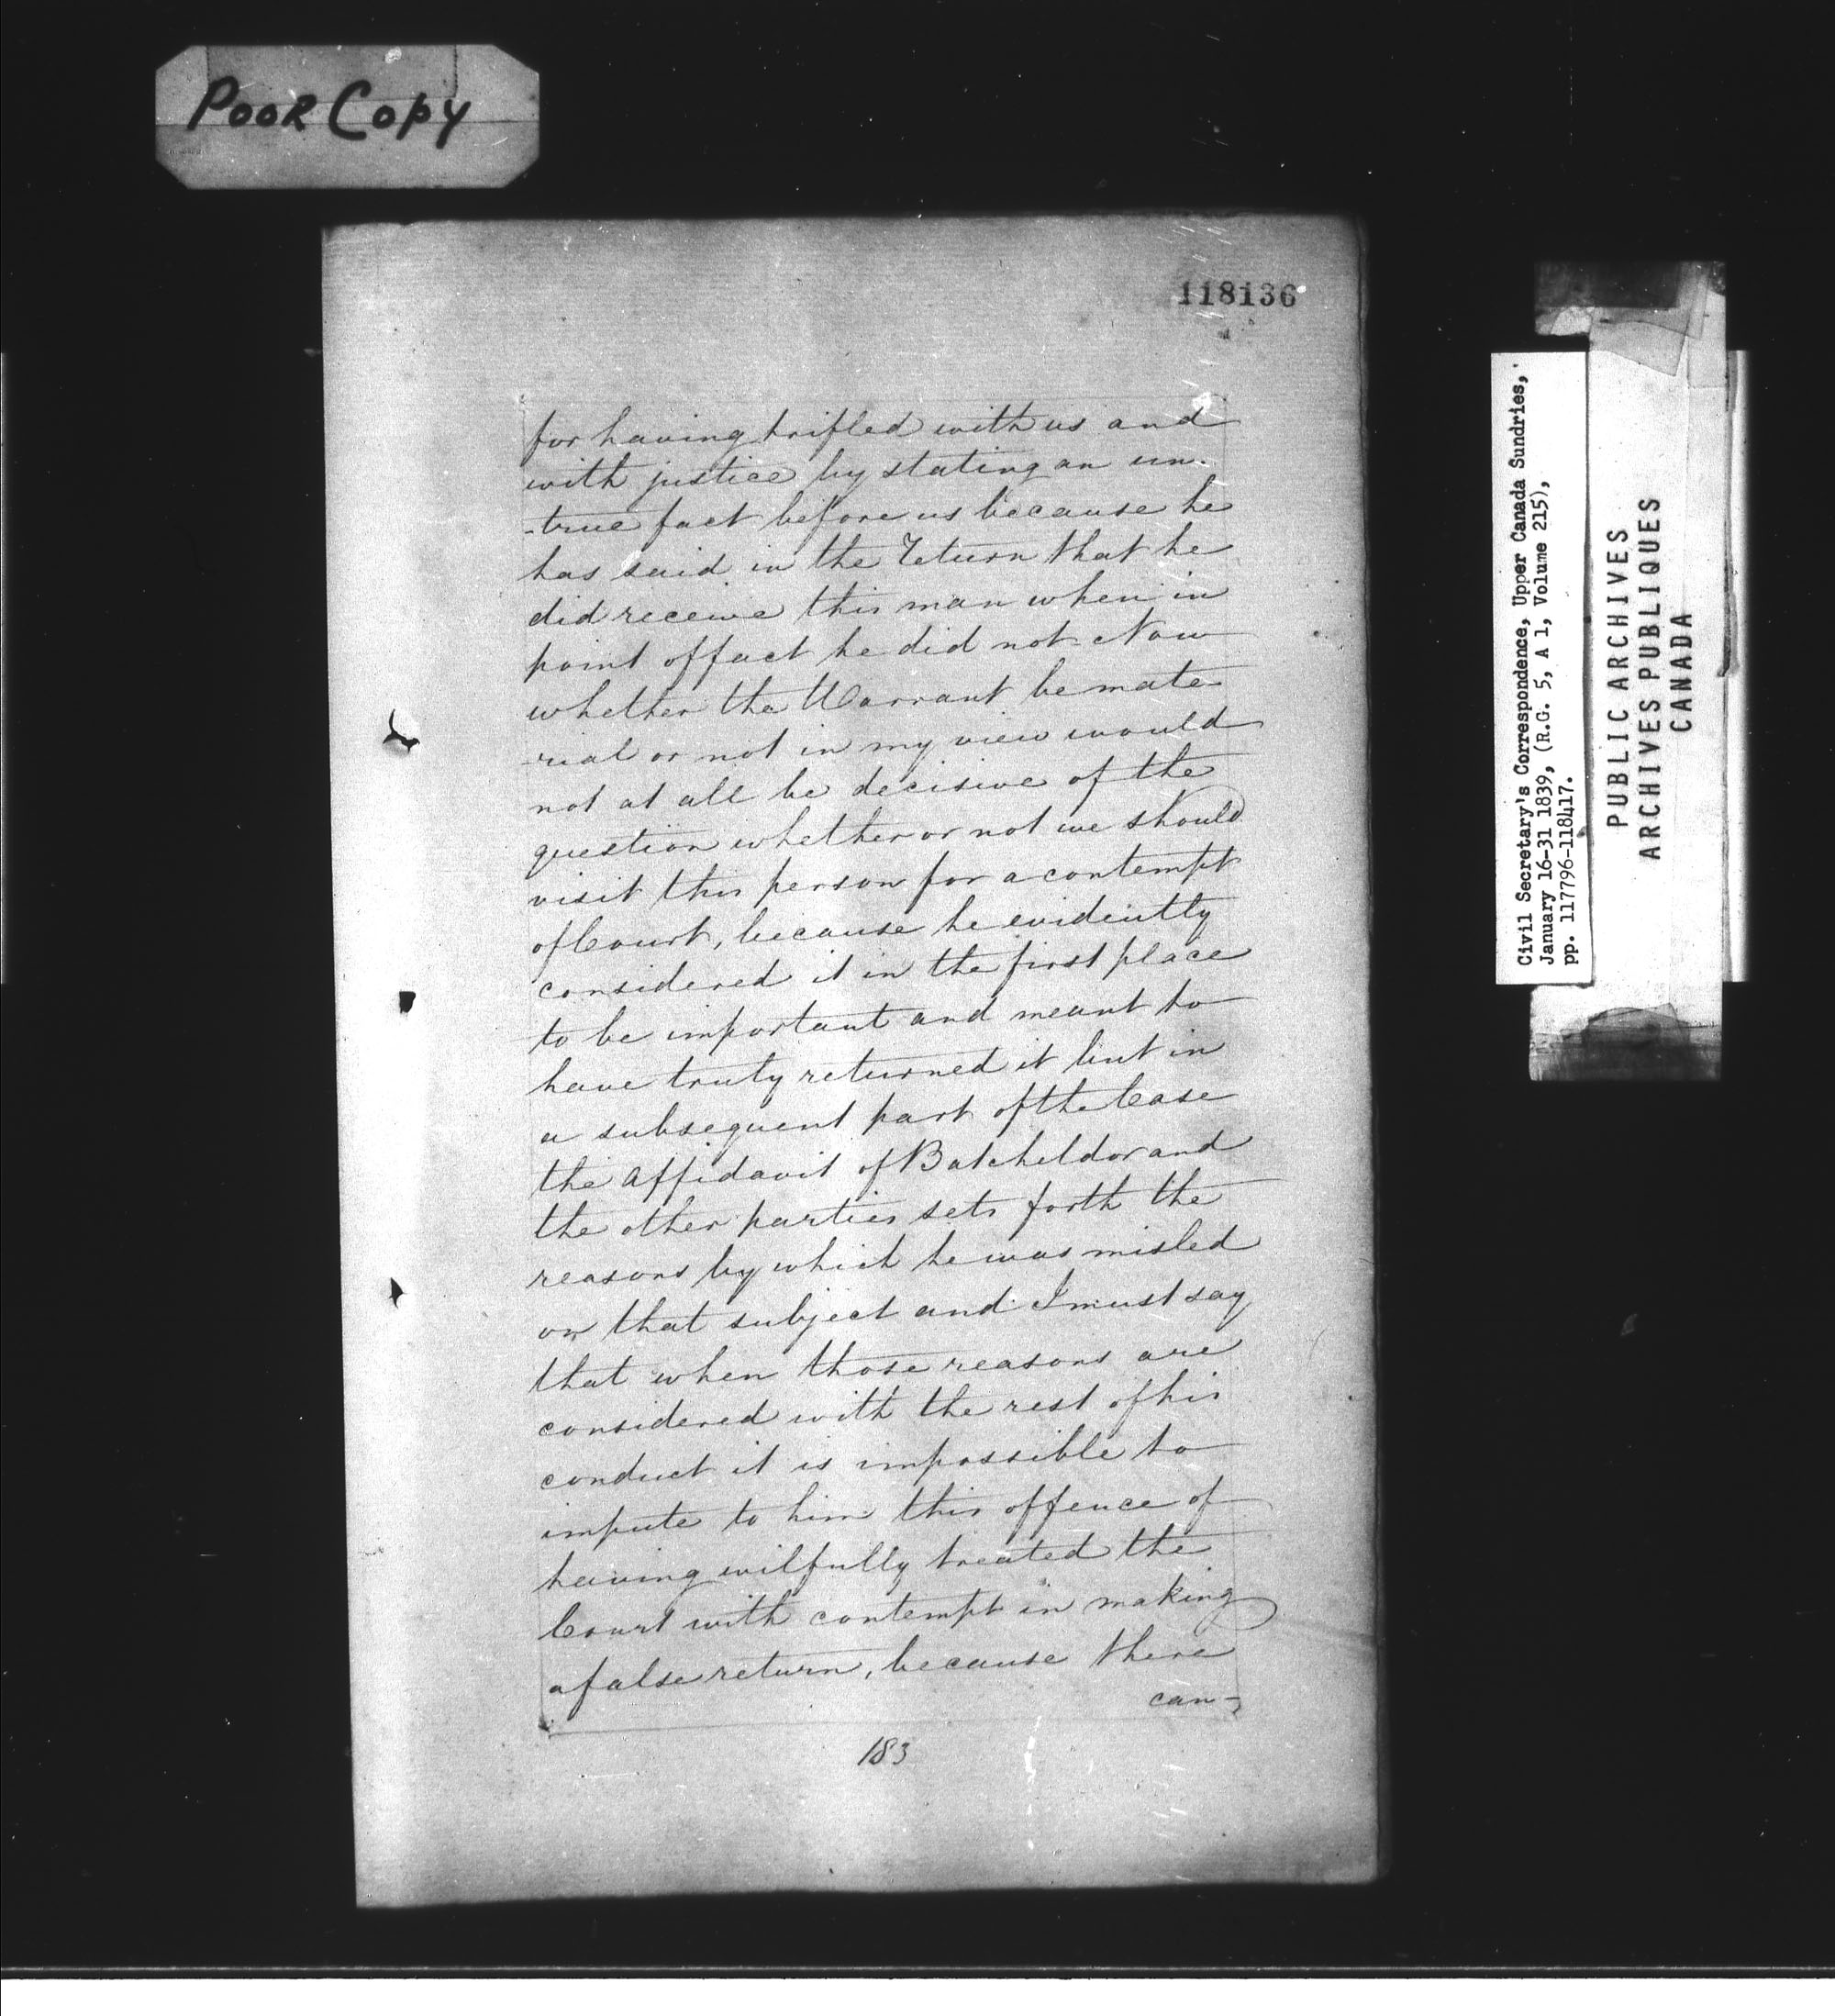 Poor Copy
118136
for having trifled with us and
with justice by stating an un-
-true fact before us because he
has said in the Return that he
did receive this man when in
point of fact he did not - Now
whether the Warrant be mate
-rial or not in my view would
not at all be decisive of the
question whether or not we should
visit this person for a contempt
of Court, because he evidently
considered it in the first place
to be important and meant to
have truly returned it but in
a subsequent part of the Case
the affidavit of Batcheldor and
the other parties sets forth the
reasons by which he was misled
on that subject and I must say
that when those reasons are
considered with the rest of his
conduct it is impossible to
impute to him this offence of
having wilfully treated the
Court with contempt in making
a false return, because there
can-
183
Civil Secretary's Correspondence, Upper Canada Sundries,
January 16-31 1839, (R.G. 5, A 1, Volume 215),
pp. 117796-118417.
PUBLIC ARCHIVES
ARCHIVES PUBLIQUES
CANADA